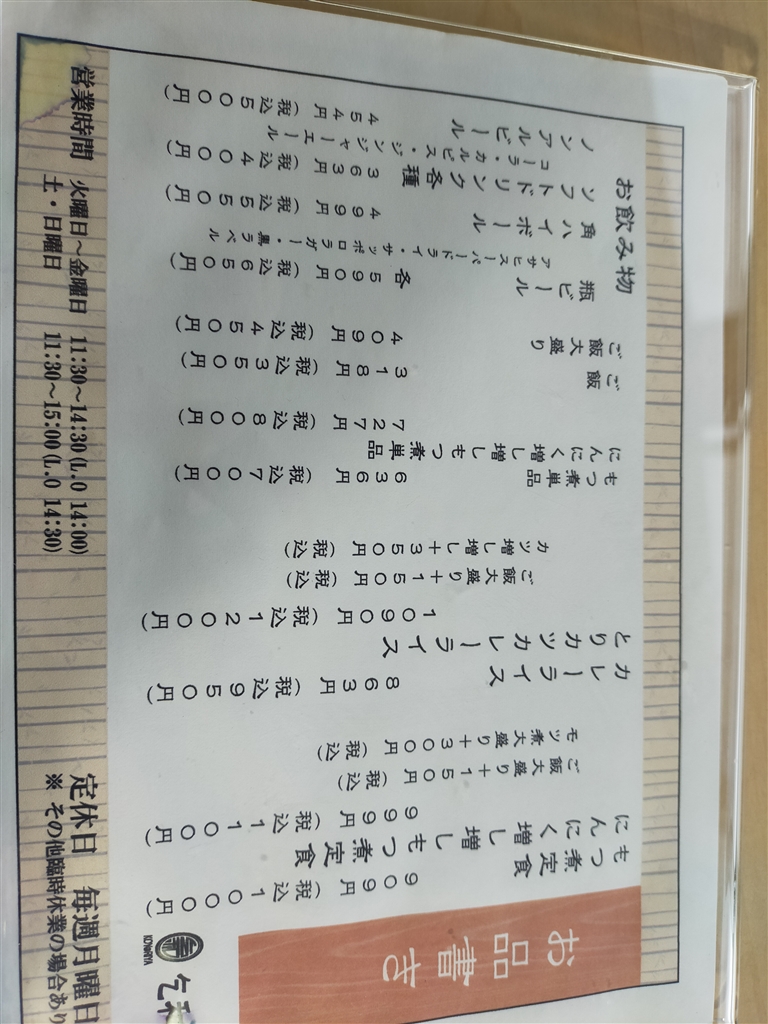 お品書き
もつ煮定食 909円 (税込1000円)
にんにく増しもつ煮定食 999円 (税込1100円)
ご飯大盛り+150円 (税込)
モツ煮大盛り+300円 (税込)
カレーライス 863円 (税込950円)
とりカツカレーライス 1090円 (税込1200円)
ご飯大盛り+150円 (税込)
カツ増し+350円 (税込)
もつ煮単品 636円 (税込700円)
にんにく増しもつ煮単品 727円 (税込800円)
ご飯 318円 (税込350円)
ご飯大盛り 409円 (税込450円)
お飲み物
瓶ビール 各590円 (税込650円)
アサヒスーパードライ・サッポロラガー・黒ラベル
角ハイボール 499円 (税込550円)
ソフトドリンク各種 363円 (税込400円)
コーラ・カルピス・ジンジャーエール
ノンアルビール 454円 (税込500円)
営業時間 火曜日～金曜日 11:30～14:30 (L.O 14:00)
土・日曜日 11:30～15:00 (L.O 14:30)
定休日 毎週月曜日
※ その他臨時休業の場合あり